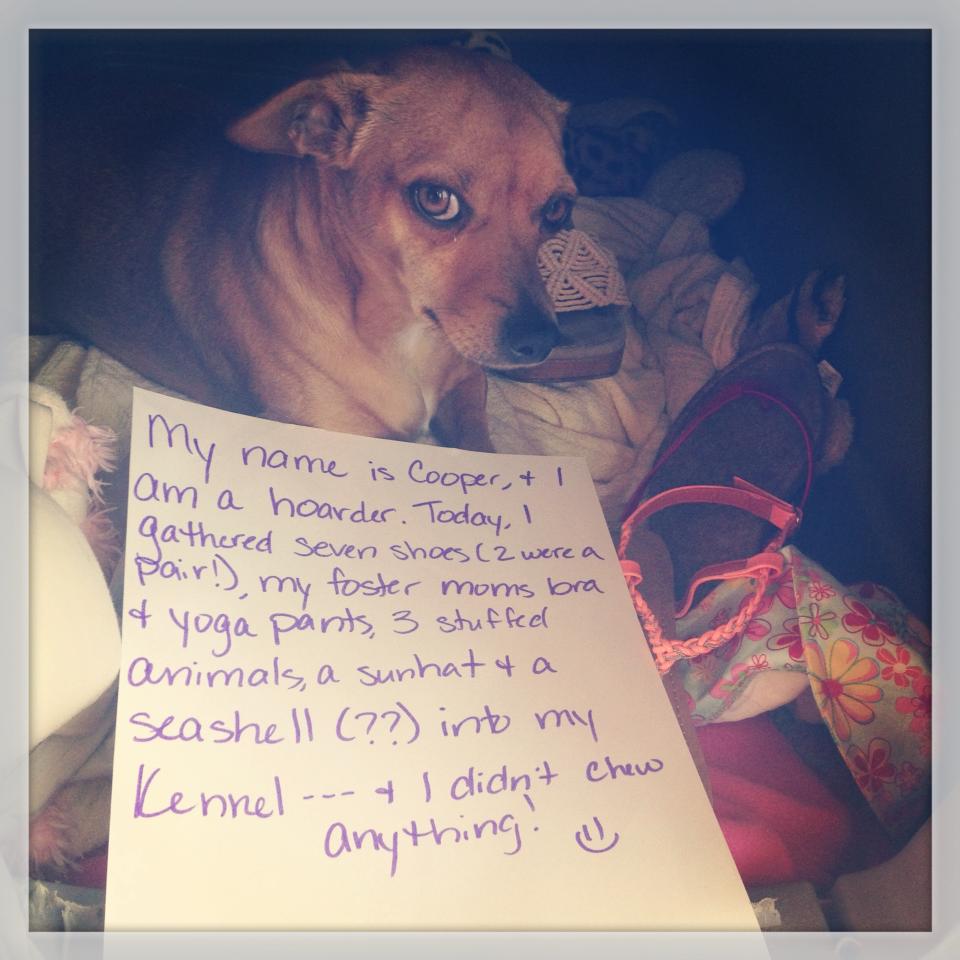 My name is Cooper, + I
am a hoarder. Today, I
gathered seven shoes (2 were a
pair!), my foster moms bra
+ yoga pants, 3 stuffed
animals, a sunhat + a
seashell (??) into my
Kennel --- + I didn't chew
anything! :)